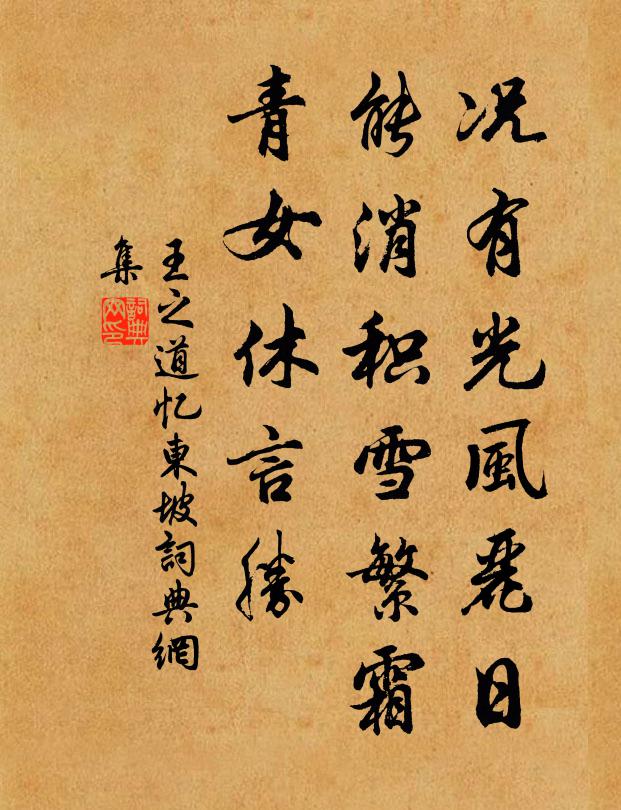 况有光風麗日
能消积雪繁霜
青女休言勝
王之道忆東坡詞典網
集
詞典